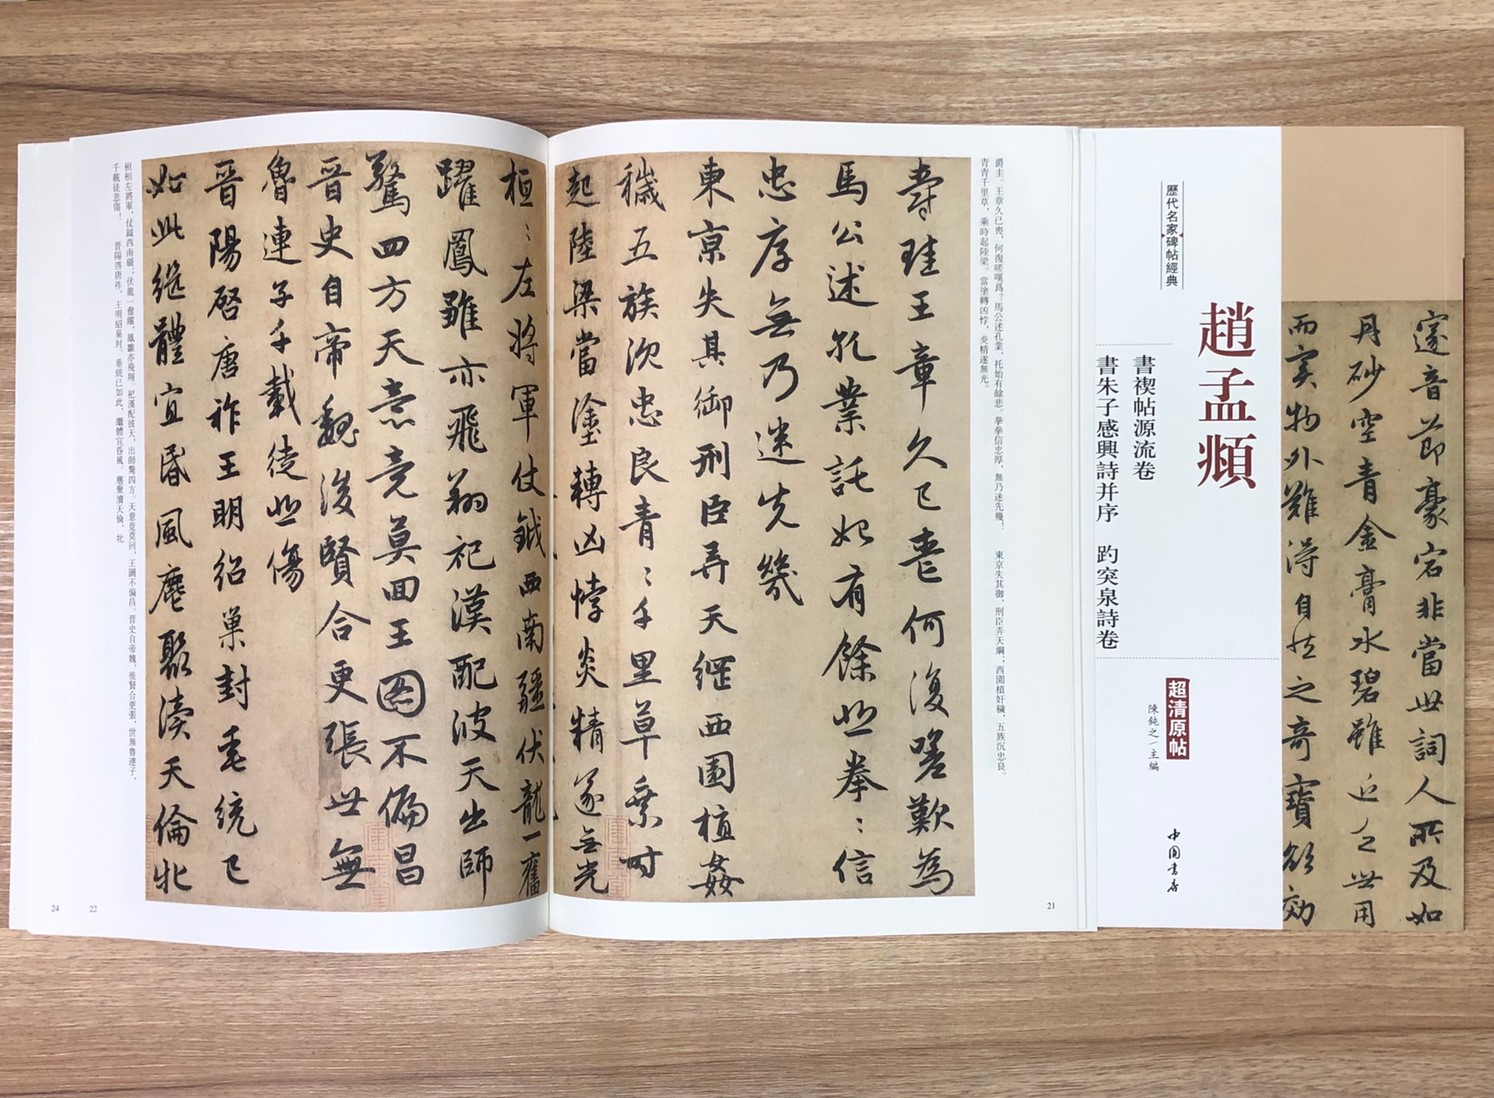 邃音節豪宕非當世詞人所及如
丹砂空青金膏水碧雖近乏世用
而實物外難得自然之奇寶欲效
趙孟頫
歷代名家碑帖經典
書禊帖源流卷
書朱子感興詩并序 趵突泉詩卷
超清原帖
陳鈍之/主編
中國書店
爵圭。王章久已喪,何復嗟嘆爲?馬公述孔業,托始有餘悲。拳拳信忠厚,無乃迷先幾! 東京失其御,刑臣弄天綱;西園植奸穢,五族沉忠良。
青青千里草,乘時起陸梁。當塗轉凶悖,炎精遂無光。
爵珪王章久已喪何復嗟歎為
馬公述孔業託始有餘悲拳〻信
忠厚無乃迷先幾
東京失其御刑臣弄天綱西園植姦
穢五族沉忠良青〻千里草乘時
起陸梁當塗轉凶悖炎精遂無光
21
桓〻左將軍仗鉞西南疆伏龍一奮
躍鳳雛亦飛翔祀漢配彼天出師
驚四方天意竟莫回王圖不偏昌
晉史自帝魏後賢合更張世無
魯連子千載徒悲傷
晉陽啓唐祚王明紹巢封垂統已
如此繼體宜昏風麀聚瀆天倫牝
桓桓左將軍,仗鉞西南疆;伏龍一奮躍,鳳雛亦飛翔。祀漢配彼天,出師驚四方。天意竟莫回,王圖不偏昌。晉史自帝魏,後賢合更張。世無魯連子,
千載徒悲傷! 晉陽啓唐祚,王明紹巢封。垂統已如此,繼體宜昏風。麀聚瀆天倫,牝
22
24